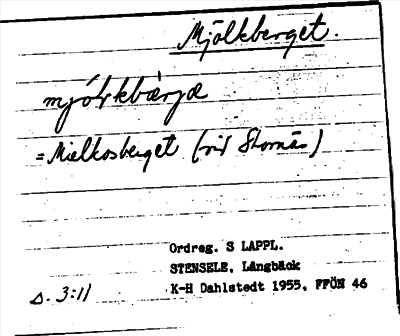 Mjölkberget.
mjólkbærjæ
= Mielkosberget (vid Stornäs)
Ordreg. S LAPPL.
STENSELE, Långbäck
s. 3:11 K-H Dahlstedt 1955, FFÖN 46